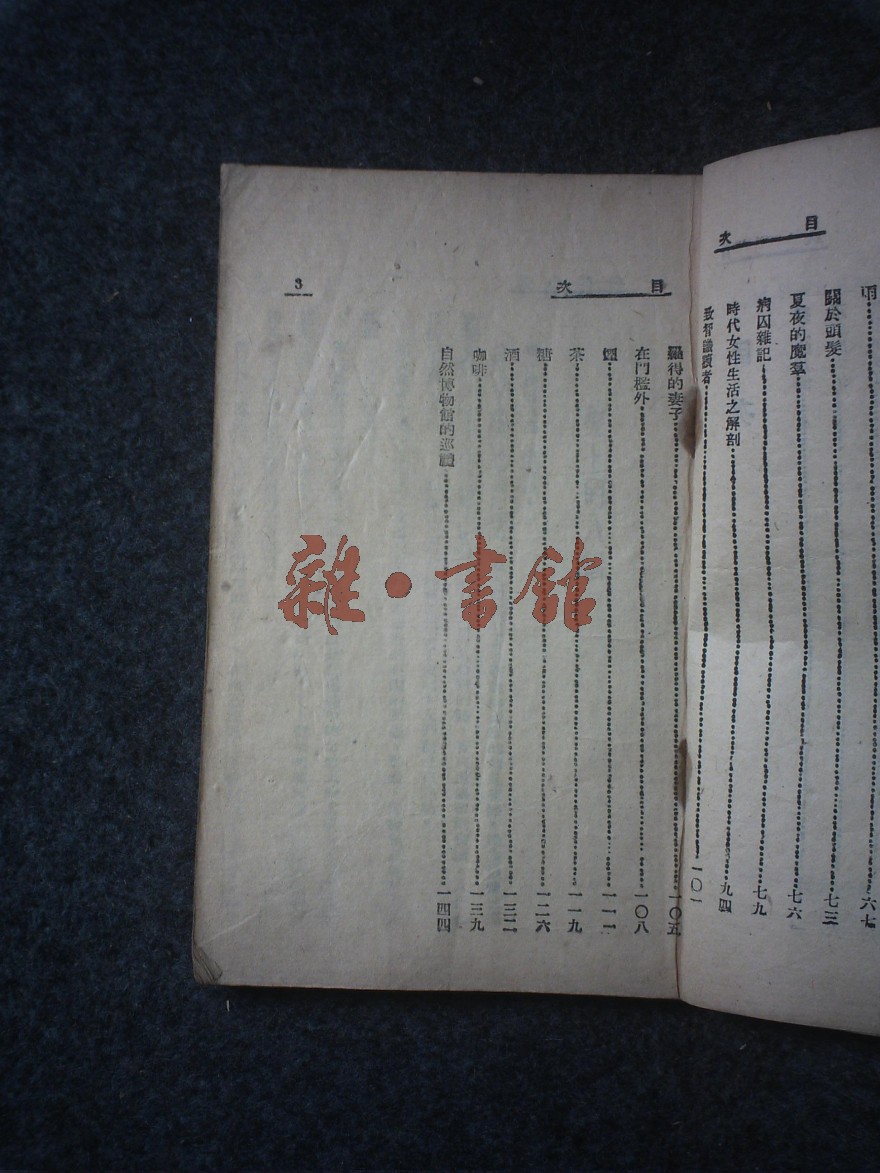 目次
雨……六七
關於頭髮……七三
夏夜的魔羣……七六
病囚雜記……七九
時代女性生活之解剖……九四
致智識者……一〇一
目次
羅得的妻子……一〇五
在門檻外……一〇八
煙……一一一
茶……一一九
糖……一二六
酒……一三二
咖啡……一三九
自然博物館的巡禮……一四四
3
雜·書館